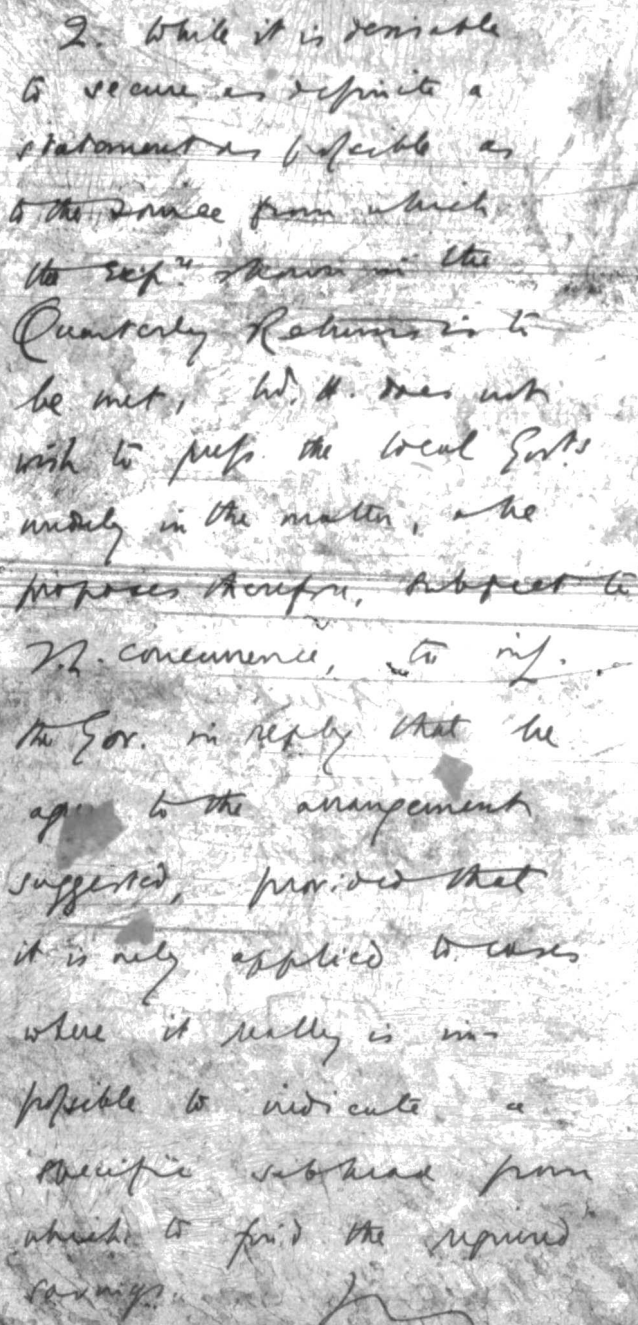 2. While it is desirable
to secure as definite a
statement as possible as
to the source from which
the Exp^n. shown in the
Quarterly Returns is to
be met, Ld. H. does not
wish to press the local Govts
unduly in the matter, & he
proposes therefore, subject to
concurrence, to inf.
the Gov. in reply that he
to the arrangement
suggested, provided that
it is only applied to cases
where it really is im-
possible to indicate a
specific subhead from
which to find the required
savings.